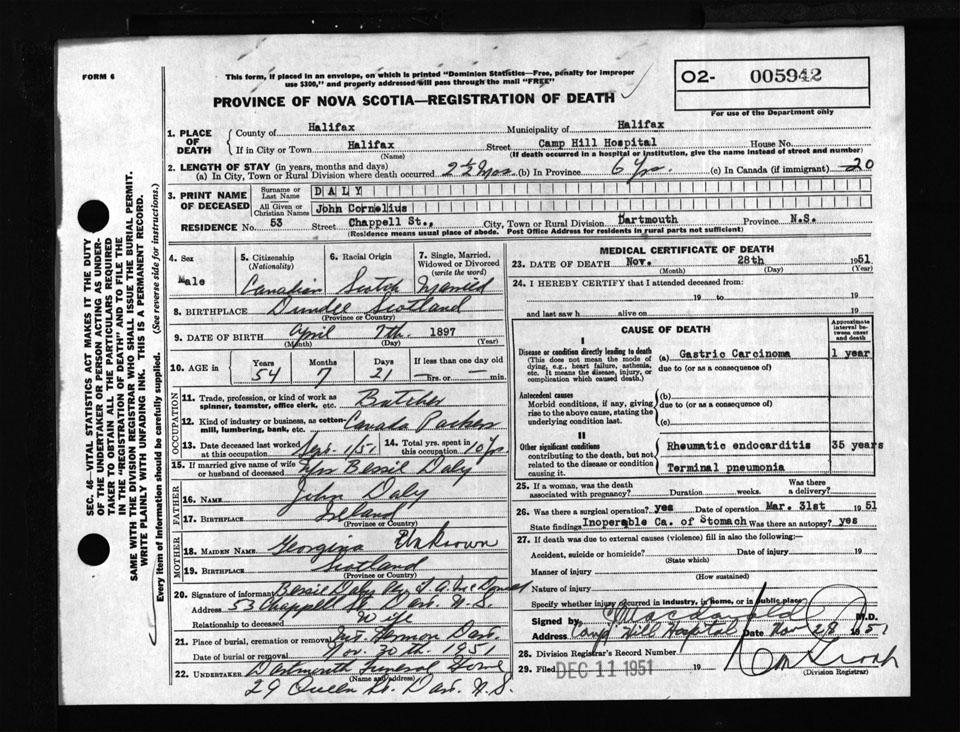 FORM 6
This form, if placed in an envelope, on which is printed "Dominion Statistics—Free, penalty for improper
use $300," and properly addressed will pass through the mail "FREE"
O2- 005942
For use of the Department only
PROVINCE OF NOVA SCOTIA—REGISTRATION OF DEATH
SEC. 46—VITAL STATISTICS ACT MAKES IT THE DUTY
OF THE UNDERTAKER OR PERSON ACTING AS UNDER-
TAKER TO OBTAIN ALL THE PARTICULARS REQUIRED
IN THE "REGISTRATION OF DEATH" AND TO FILE THE
SAME WITH THE DIVISION REGISTRAR WHO SHALL ISSUE THE BURIAL PERMIT.
WRITE PLAINLY WITH UNFADING INK. THIS IS A PERMANENT RECORD.
Every item of information should be carefully supplied. (See reverse side for instructions.)
1. PLACE OF DEATH
County of Halifax Municipality of Halifax
If in City or Town Halifax Street Camp Hill Hospital House No.
(Name) (If death occurred in a hospital or institution, give the name instead of street and number)
2. LENGTH OF STAY (in years, months and days)
(a) In City, Town or Rural Division where death occurred 2½ Mos. (b) In Province 6 Yrs. (c) In Canada (if immigrant) 20
3. PRINT NAME OF DECEASED
Surname or Last Name DALY
All Given or Christian Names John Cornelius
RESIDENCE No. 53 Street Chappell St., City, Town or Rural Division Dartmouth Province N.S.
(Residence means usual place of abode. Post Office Address for residents in rural parts not sufficient)
4. Sex Male
5. Citizenship (Nationality) Canadian
6. Racial Origin Scotch
7. Single, Married, Widowed or Divorced (write the word) Married
8. BIRTHPLACE Dundee Scotland
(Province or Country)
9. DATE OF BIRTH April 7th. 1897
(Month) (Day) (Year)
10. AGE in Years 54 Months 7 Days 21 If less than one day old — hrs. or — min.
OCCUPATION
11. Trade, profession, or kind of work as spinner, teamster, office clerk, etc. Butcher
12. Kind of industry or business, as cotton-mill, lumbering, bank, etc. Canada Packers
13. Date deceased last worked at this occupation Sept. 1/51
14. Total yrs. spent in this occupation 10 Yrs.
15. If married give name of wife or husband of deceased Mrs Bessie Daly
FATHER
16. NAME John Daly
17. BIRTHPLACE Ireland
(Province or Country)
MOTHER
18. MAIDEN NAME Georgina Unknown
19. BIRTHPLACE Scotland
(Province or Country)
20. Signature of informant Bessie Daly Per A. McDonald
Address 53 Chappell St. Dart. N.S.
Relationship to deceased Wife
21. Place of burial, cremation or removal Mt. Hermon Dart.
Date of burial or removal Nov. 30th. 1951
22. UNDERTAKER Dartmouth Funeral Home
(Name and address)
29 Queen St. Dart. N.S.
MEDICAL CERTIFICATE OF DEATH
23. DATE OF DEATH Nov. 28th 1951
(Month) (Day) (Year)
24. I HEREBY CERTIFY that I attended deceased from:
19 to 19
and last saw h alive on 19
CAUSE OF DEATH
Approximate interval between onset and death
I
Disease or condition directly leading to death
(This does not mean the mode of dying, e.g., heart failure, asthenia, etc. It means the disease, injury, or complication which caused death.)
(a) Gastric Carcinoma 1 year
due to (or as a consequence of)
Antecedent causes
Morbid conditions, if any, giving rise to the above cause, stating the underlying condition last.
(b)
due to (or as a consequence of)
(c)
II
Other significant conditions
contributing to the death, but not related to the disease or condition causing it.
Rheumatic endocarditis 35 years
Terminal pneumonia
25. If a woman, was the death associated with pregnancy? Duration weeks. Was there a delivery?
26. Was there a surgical operation? yes Date of operation Mar. 31st 1951
State findings Inoperable Ca. of Stomach Was there an autopsy? yes
27. If death was due to external causes (violence) fill in also the following:—
Accident, suicide or homicide? Date of injury 19
(State which)
Manner of injury
(How sustained)
Nature of injury
Specify whether injury occurred in industry, in home, or in public place
Signed by M.D.
Address Camp Hill Hospital Date Nov 28 1951
28. Division Registrar's Record Number
29. Filed DEC 11 1951 19
(Division Registrar)